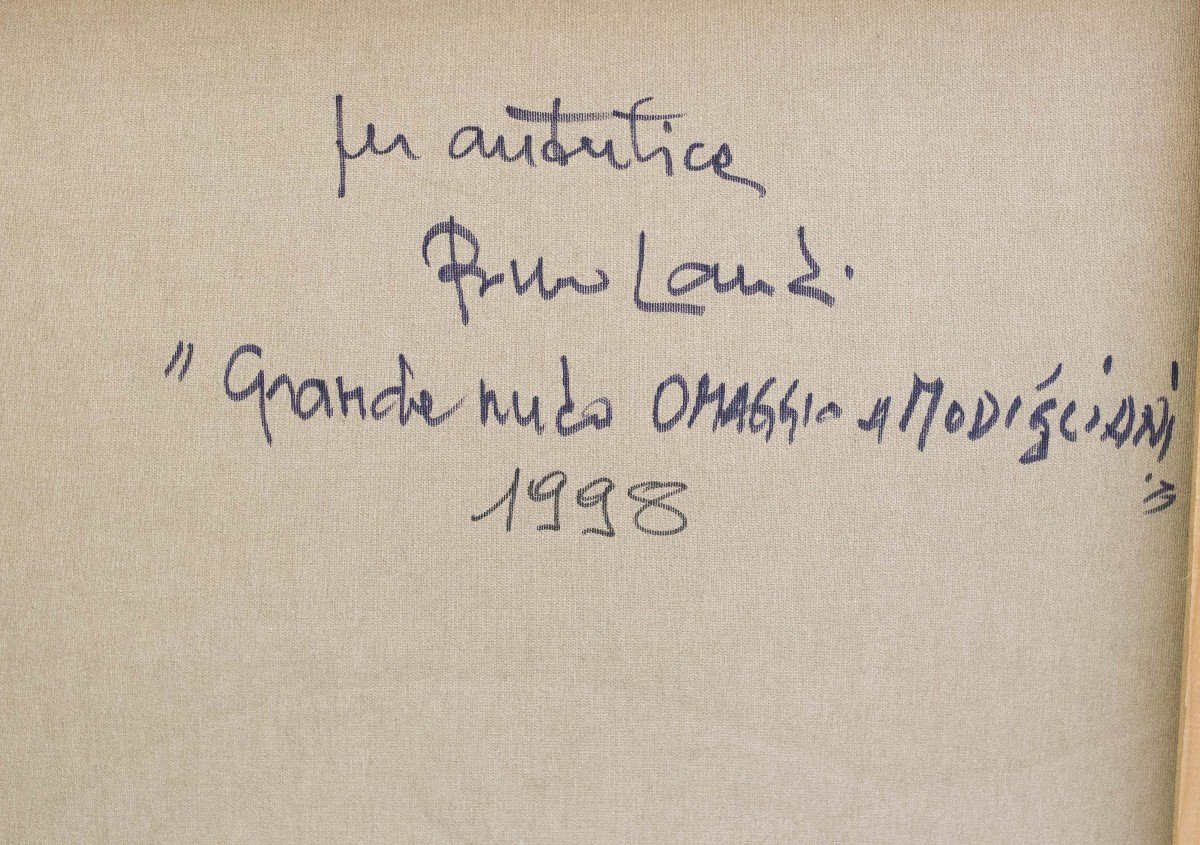 per autentica
Bruno Landi
"Grande nudo OMAGGIO A MODIGLIANI
"
1998